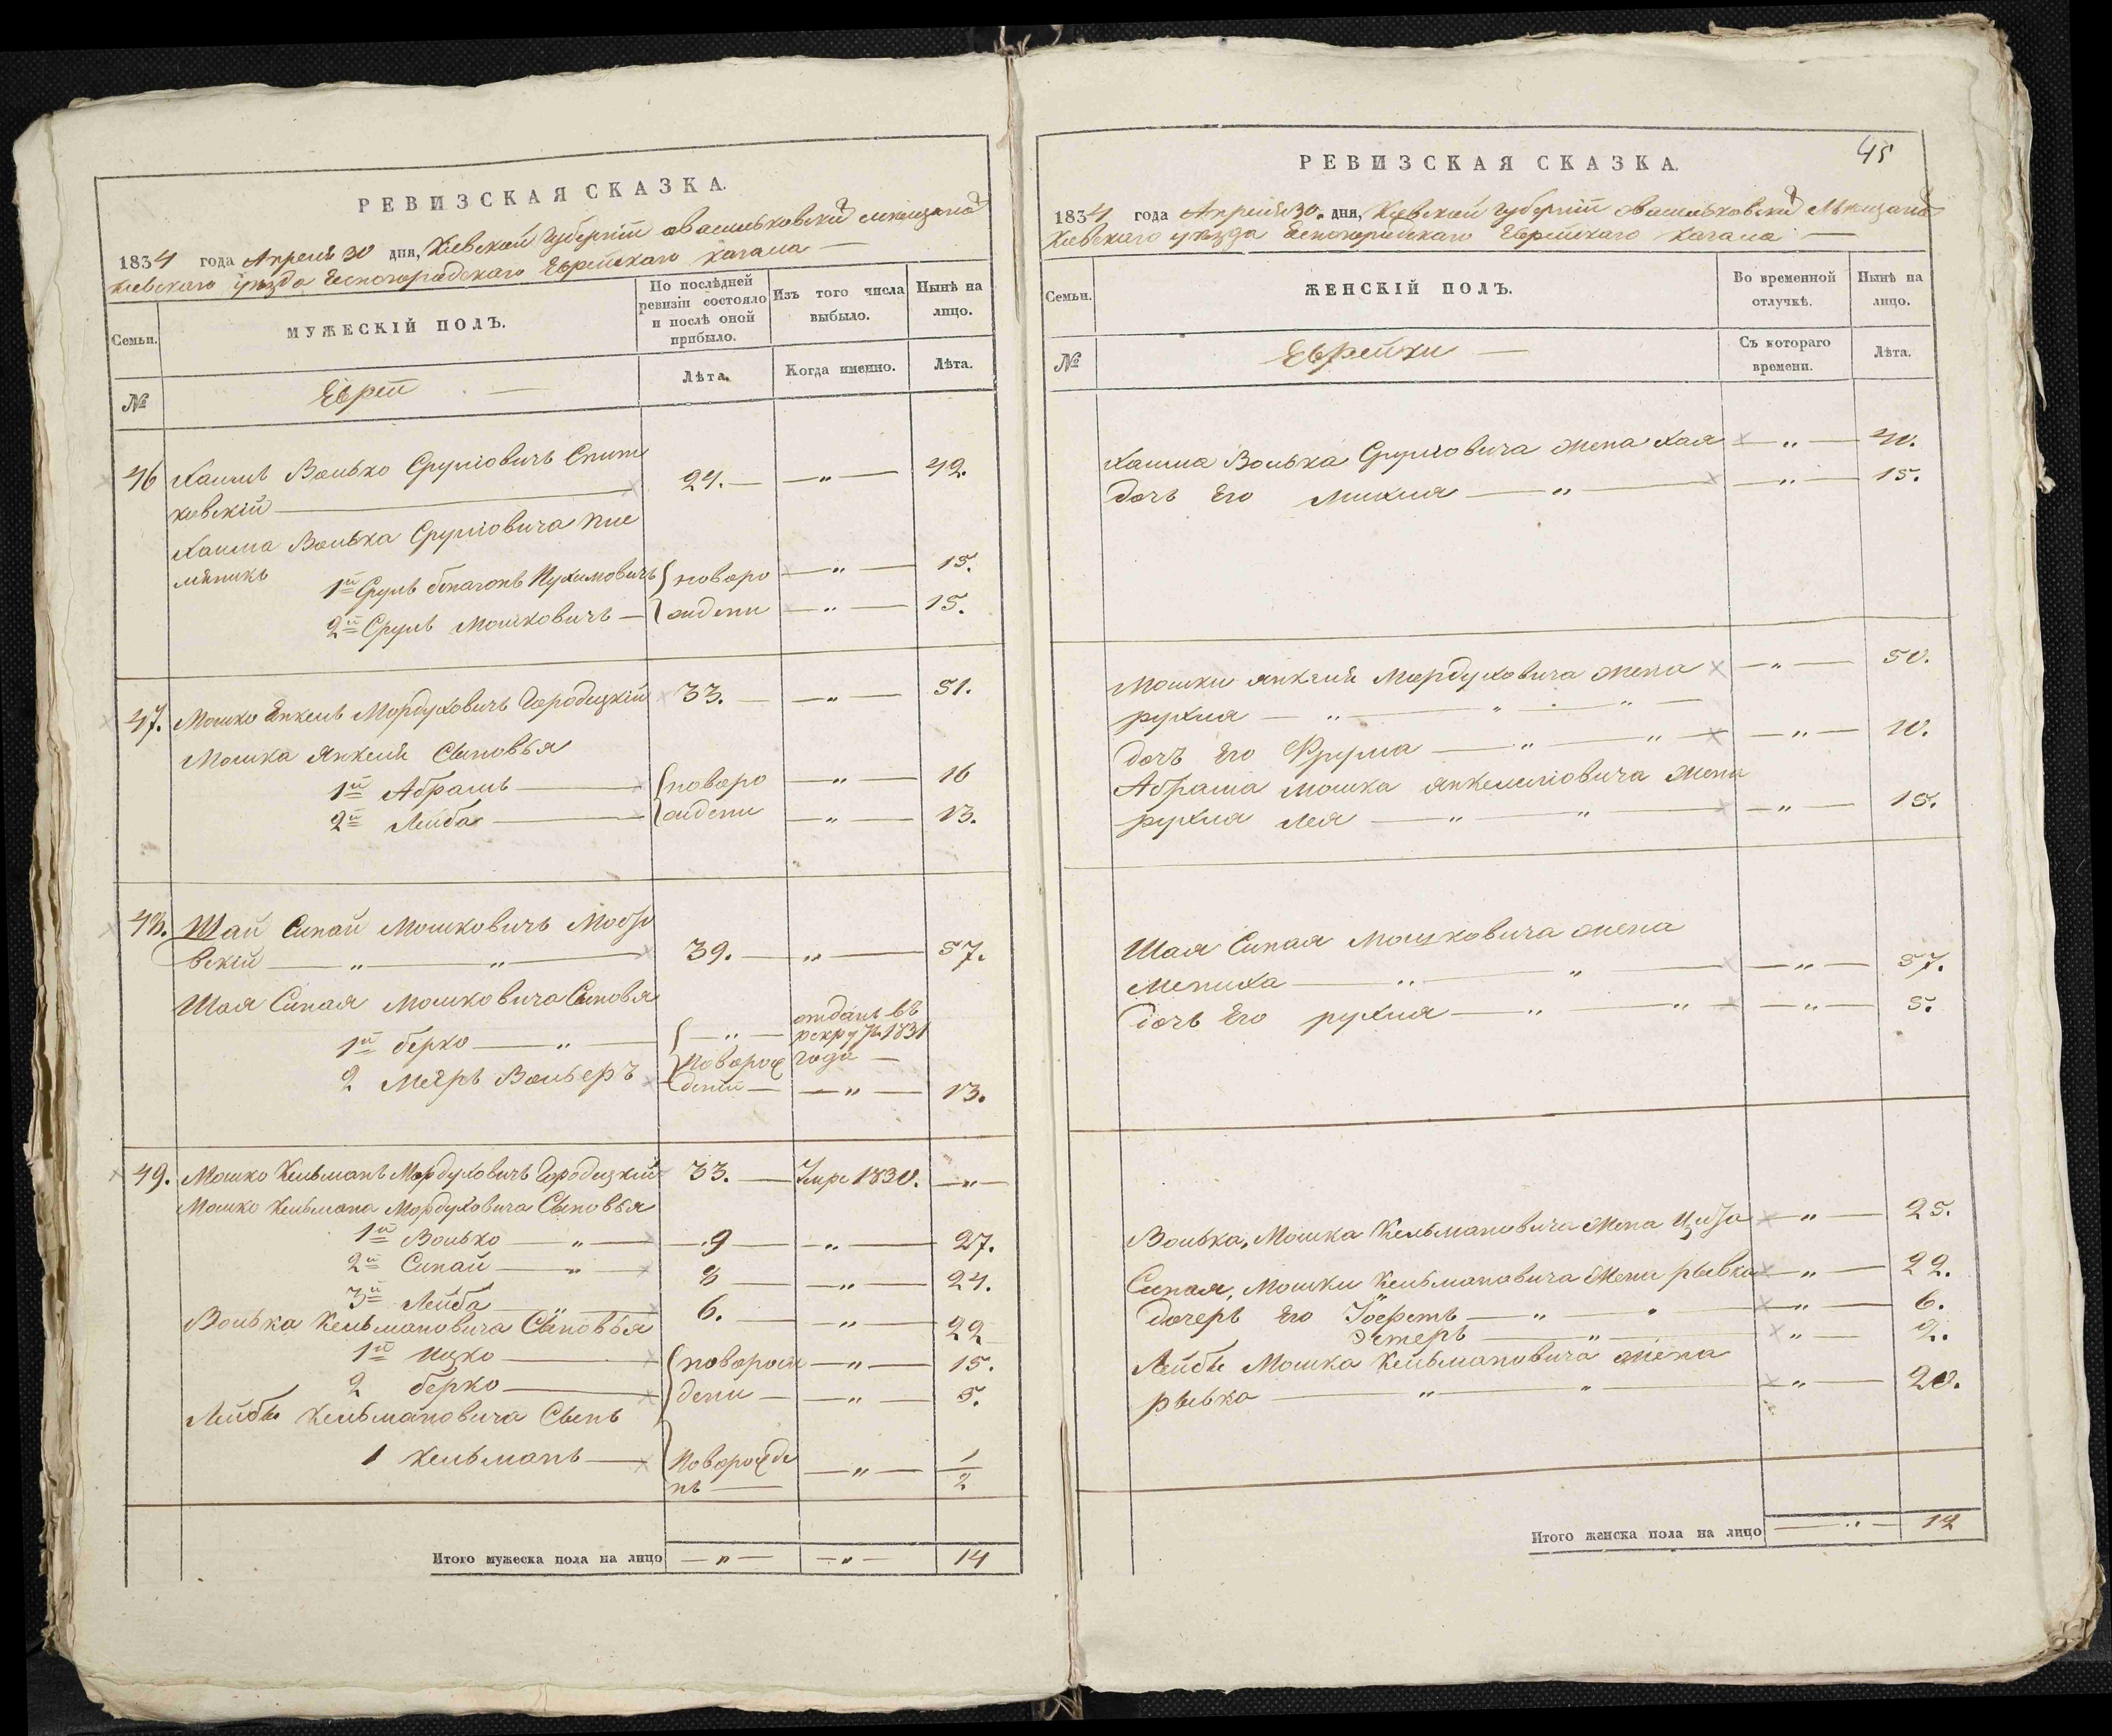 РЕВИЗСКАЯ СКАЗКА.
1834 года Апреля 30 дня, Кіевской Губерніи Васильковскій мѣщанъ
Кіевскаго уѣзда Ясногородскаго Еврейскаго Кагала —
Семьи.
МУЖЕСКІЙ ПОЛЪ.
По послѣдней ревизіи состояло и послѣ оной прибыло.
Изъ того числа выбыло.
Нынѣ на лицо.
№
Евреи —
Лѣта.
Когда именно.
Лѣта.
46 Хаимъ Волько Сруліовичъ
ковскій — 24. — „ — 42.
Хаима Волька Сруліовича пле
мѣники
1й Сруль Нухимовичъ новоро — „ — 15.
2й Сруль Мошковичъ — ждени — „ — 15.
47. Мошко Янкель Мордуховичъ Городецкій 33. — „ — 51.
Мошка Янкеля Сыновья
1й Абрамъ — новоро — „ — 16
2й Лейба — ждени — „ — 13.
48. Шай Синай Мошковичъ
вскій — „ — „ — 39. — „ — 57.
Шая Синая Мошковича Сыновя
1й берко — „ — „ — отданъ въ рекруты 1831 года —
2 Меѣръ Вольфъ новорож дени — „ — 13.
49. Мошко Кельманъ Мордуховичъ Городецкій 33. — Умре 1830. — „ —
Мошко Кельмана Мордуховича Сыновья
1й Волько — „ — 9 — „ — 27.
2й Синай — „ — 8 — „ — 24.
3й Лейба — 6. — „ — 22
Волька Кельмановича Сыновья
1й Ицко — новорож — „ — 15.
2 берко — дени — „ — 5.
Лейбы Кельмановича Сынъ
1 Кельманъ — новорожде нъ — „ — 1/2
Итого мужеска пола на лицо — „ — — „ — 14
45
РЕВИЗСКАЯ СКАЗКА.
1834 года Апреля 30. дня, Кіевской Губерніи Васильковскій Мѣщанъ
Кіевскаго уѣзда Ясногородскаго Еврейскаго Кагала —
Семьи.
ЖЕНСКІЙ ПОЛЪ.
Во временной отлучкѣ.
Нынѣ на лицо.
№
Еврейки —
Съ котораго времени.
Лѣта.
Хаима Волька Сруліовича жена Хая — „ — 40.
дочь Его Михля — „ — — „ — 15.
Мошки Янкеля Мордуховича жена — „ — 50.
рухля — „ — „ — „ —
дочь Его Фрума — „ — „ — — „ — 10.
Абрама Мошка Янкелиовича жена
рухля Лея — „ — „ — — „ — 15.
Шая Синая Мошковича жена
Мениха — „ — „ — — „ — 57.
дочь Его рухля — „ — „ — — „ — 5.
Волька, Мошка Кельмановича жена — „ — 25.
Синая, Мошки Кельмановича жена рывка — „ — 22.
дочерь Его — „ — „ — 6.
Эстеръ — „ — „ — 2.
Лейбы Мошка Кельмановича жена
рывка — „ — „ — — „ — 20.
Итого женска пола на лицо — „ — 12